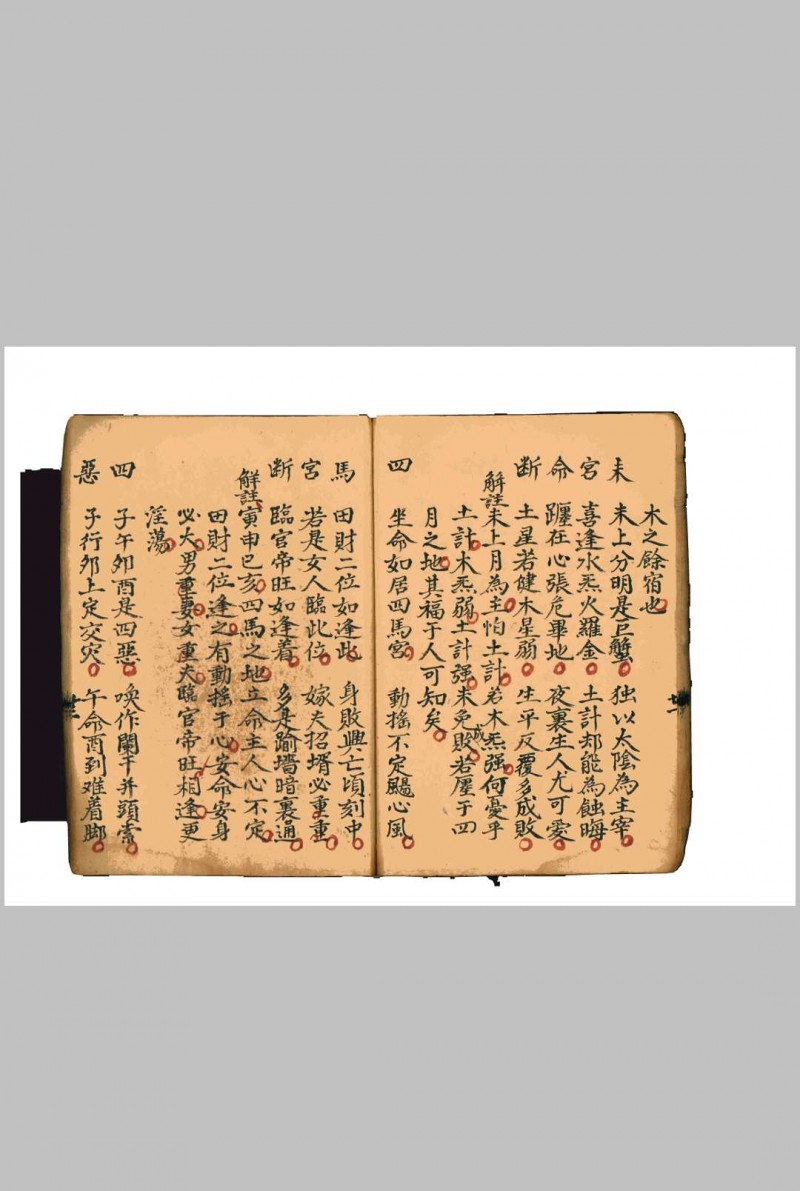 木之餘宿也
未 未上分明是巨蟹 独以太陰為主宰
宮 喜逢水炁火羅金 土計却能為蝕晦
命 躔在心張危畢地 夜裏生人尤可愛
断 土星若健木星弱 生平反覆多成敗
解註 未上月為主怕土計 若木炁强何憂乎
土計木炁弱土計强未免成敗若屡于四
月之地其福于人可知矣
四 坐命如居四馬宮 動搖不定飃心風
馬 田財二位如逢此 身敗興亡頃刻中
宮 若是女人臨此位 嫁夫招壻必重重
断 臨官帝旺如逢着 多是踰墻暗裏通
解註 寅申巳亥四馬之地立命主人心不定
田財二位逢之有動搖于心安命安身
必大男重妻女重夫臨官帝旺相逢更
淫蕩
四 子午夘酉是四惡 喚作闌干并頭索
惡 子行夘上定交穴 午命酉到难着脚